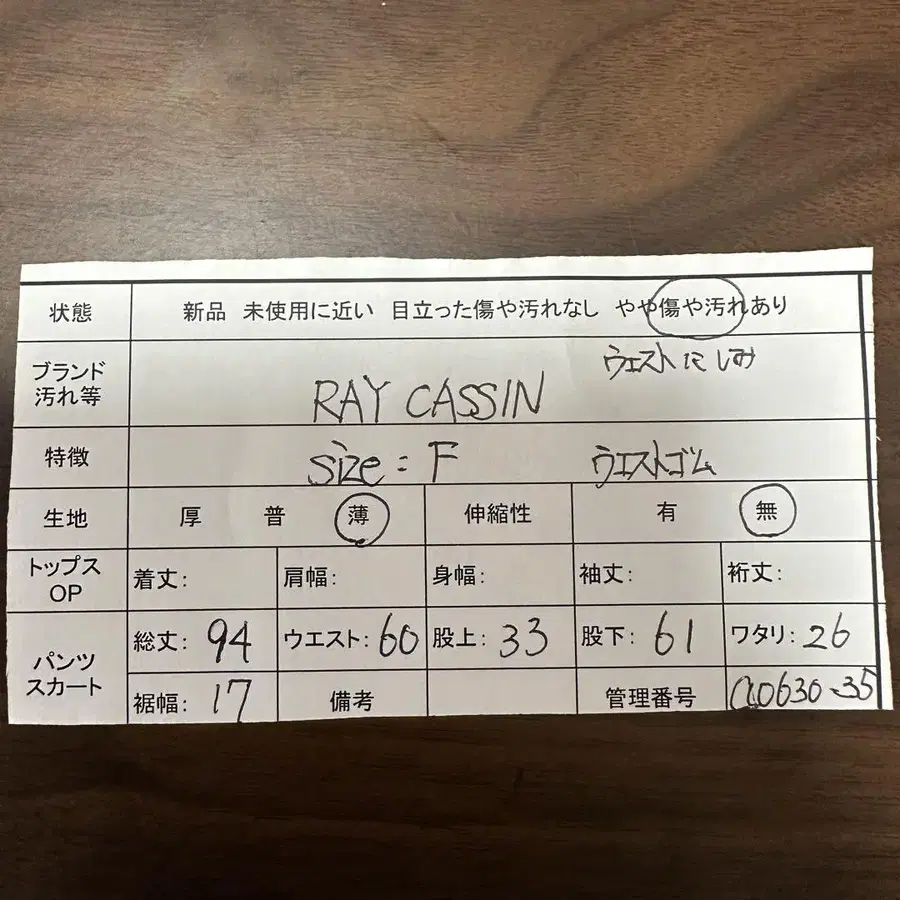 状態 新品 未使用に近い 目立った傷や汚れなし やや傷や汚れあり
ブランド
汚れ等
ウエストにしみ
RAY CASSIN
特徴 size : F ウエストゴム
生地 厚 普 薄 伸縮性 有 無
トップス
OP
着丈: 肩幅: 身幅: 袖丈: 裄丈:
パンツ
スカート
総丈: 94 ウエスト: 60 股上: 33 股下: 61 ワタリ: 26
裾幅: 17 備考 管理番号 a0630-35